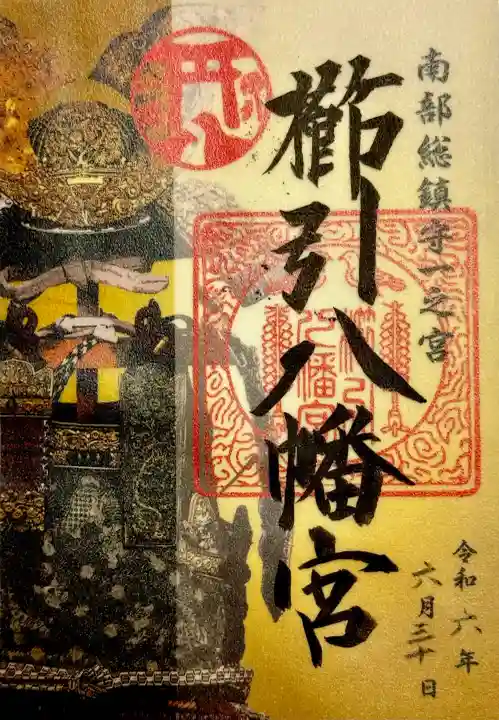 南部総鎮守一之宮
櫛引八幡宮
櫛引八幡宮
令和六年
六月三十日